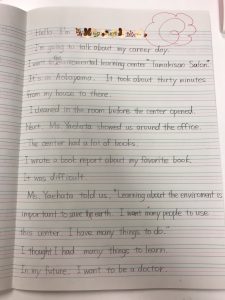 Hello. I'm
I'm going to talk about my career day.
I went to the environmental learning center "Tamarisan Salon".
It's in Aobayama. It took about thirty minutes
from my house to there.
I cleaned in the room before the center opened.
Next, Ms. Yachata showed us around the office.
The center had a lot of books.
I wrote a book report about my favorite book.
It was difficult.
Ms. Yachata told us, "Learning about the enviroment is
important to save the earth. I want many people to use
this center. I have many things to do."
I thought I had many things to learn.
In my future, I want to be a doctor.